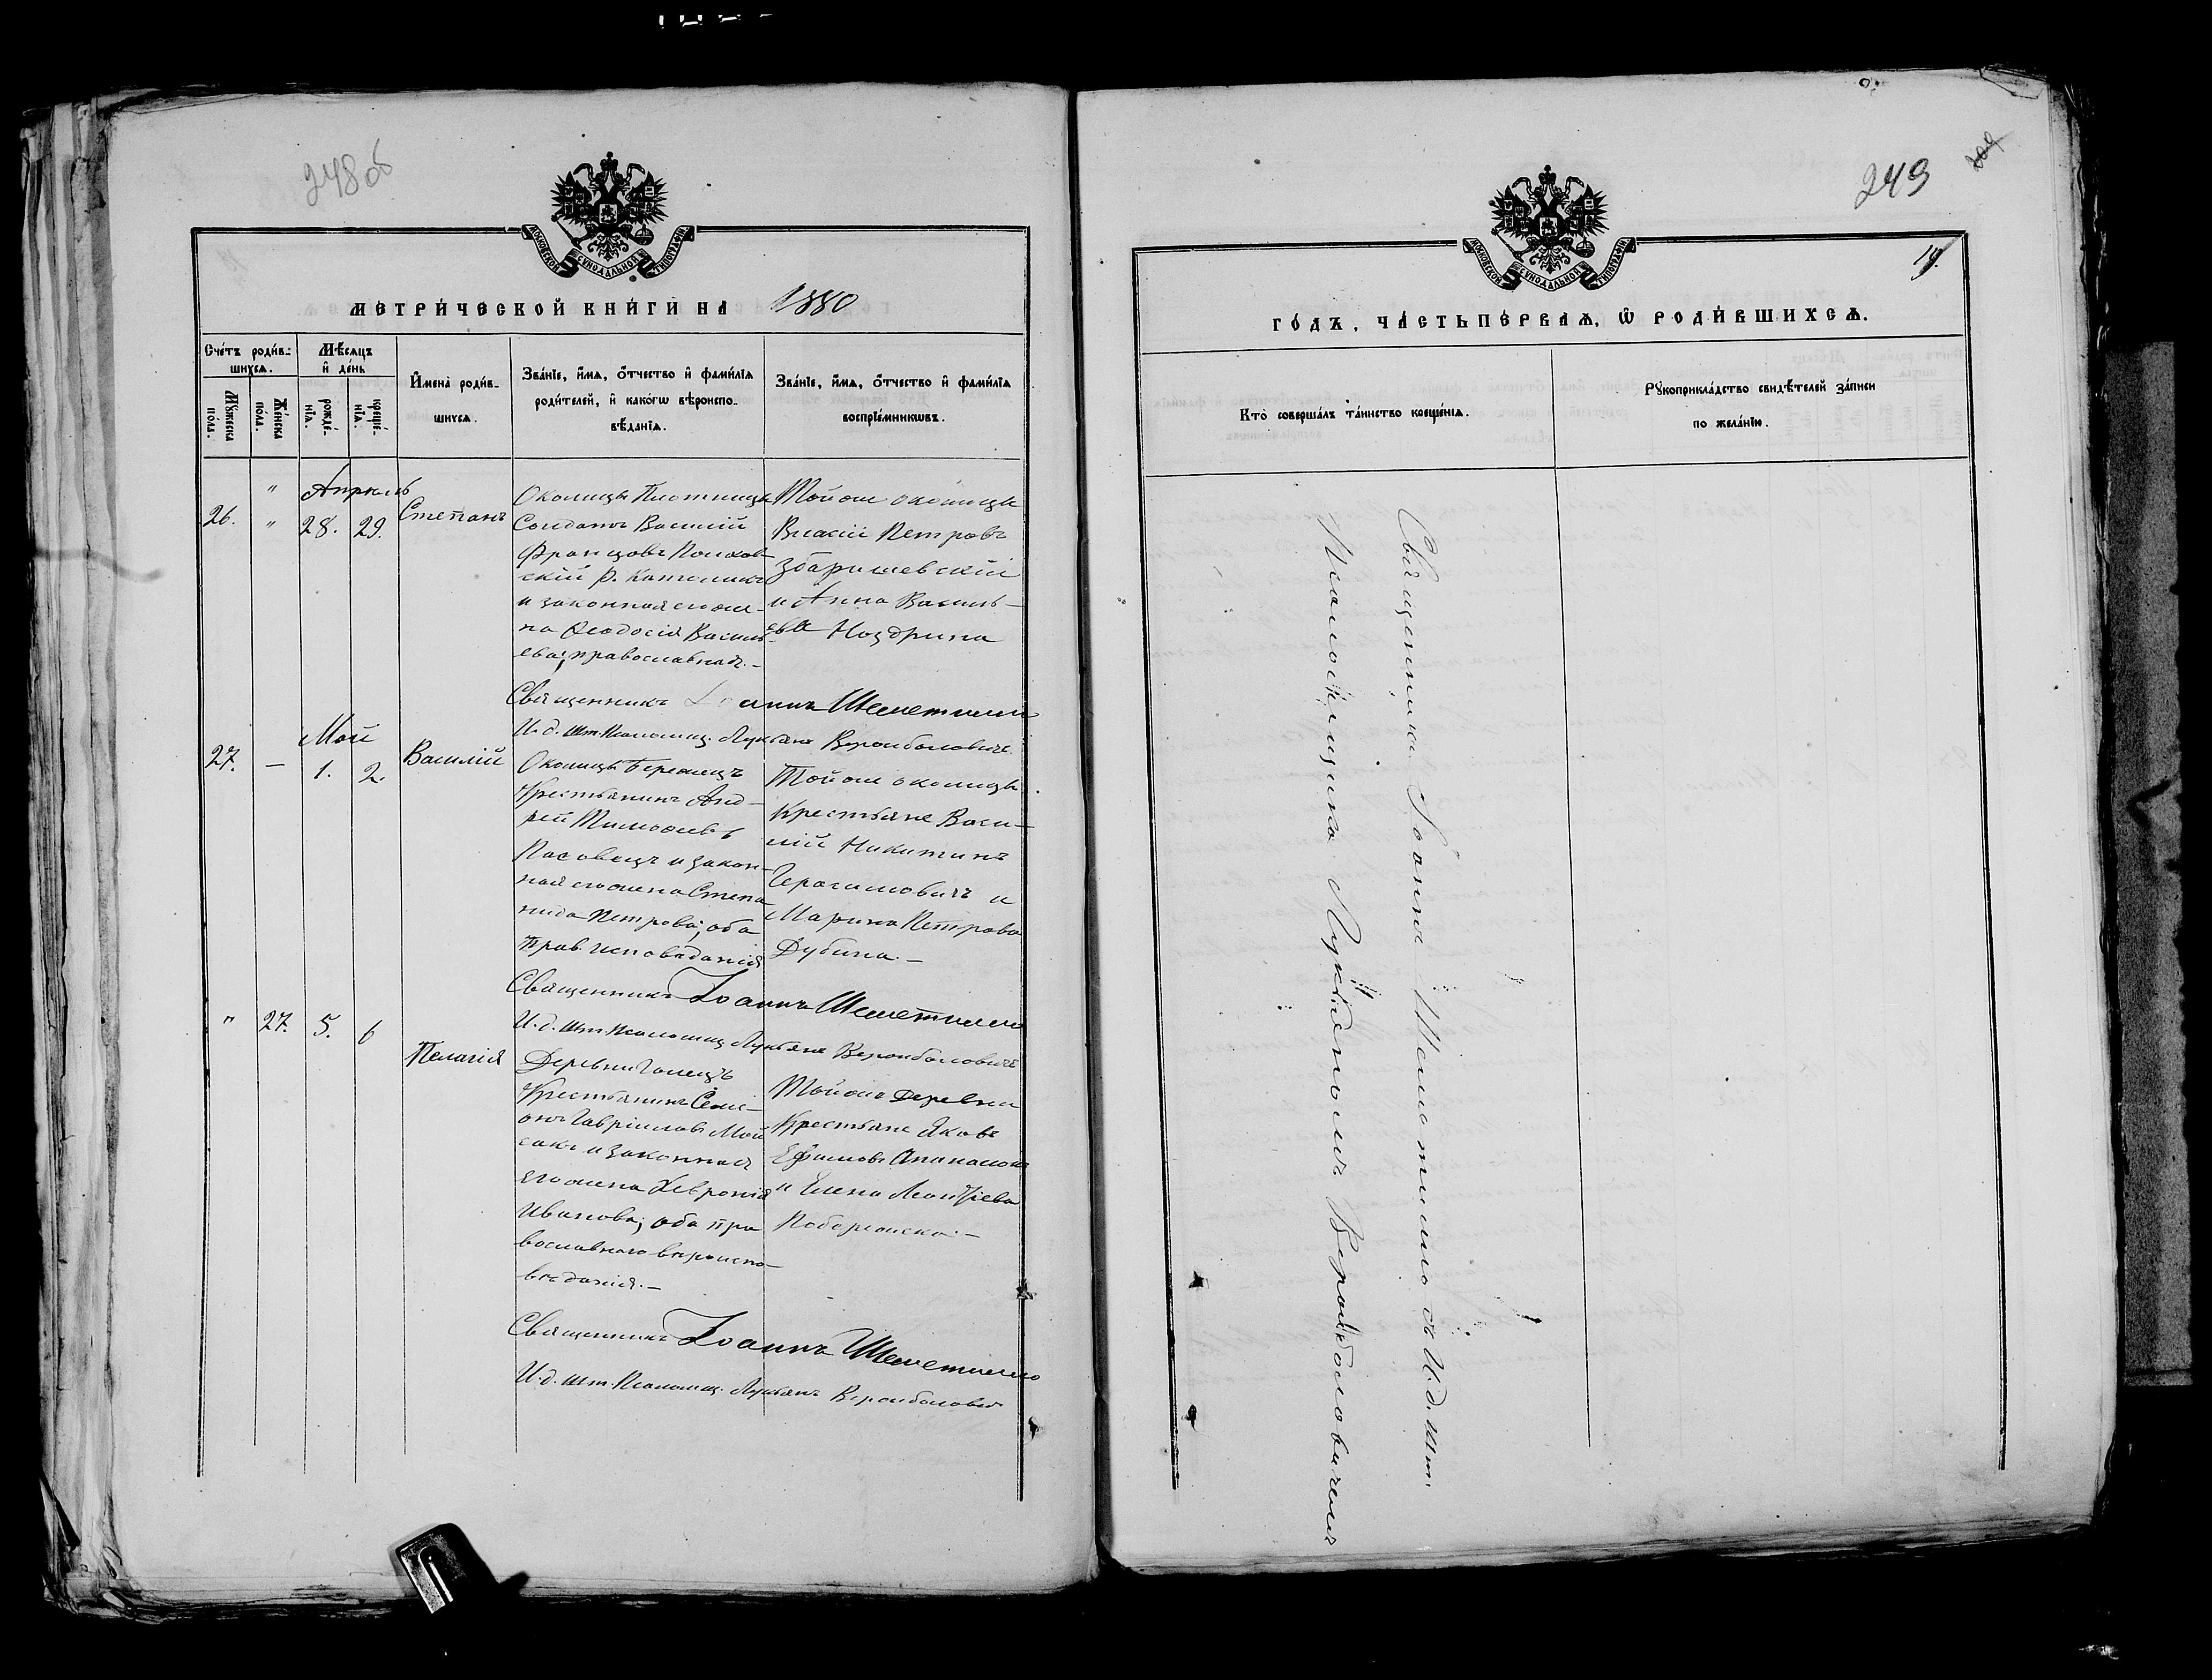 248 об
МОСКОВСКОЙ СѴНОДАЛЬНОЙ ТИПОГРАФІИ
МЕТРИ́ЧЕСКОЙ КНИ́ГИ НА 1880
Сче́тъ роди́в-
шихсѧ.
Мѣ́сѧцъ
и҆ де́нь
Мꙋ́жеска
по́ла.
Же́нска
по́ла.
рожде́-
нїѧ.
креще́-
нїѧ.
И҆мена̀ роди́в-
шихсѧ.
Зва́нїе, и҆́мѧ, ѻ҆́тчество и҆ фами́лїѧ
роди́телей, и҆ како́гѡ вѣроиспо-
вѣ́данїѧ.
Зва́нїе, и҆́мѧ, ѻ҆́тчество и҆ фами́лїѧ
воспрїе́мникѡвъ.
Апрель
26. " 28. 29. Степанъ
Околицы Плотница
Солдатъ Василій
Францовъ Польков-
скій р. католикъ
и законная его же-
на Ѳеодосія Василь-
ева; православная.-
Той же околицы
Власій Петровъ
Збаришевскій
и Анна Василь-
ева Ноздрина
Священникъ Іоаннъ Шеметилло
И. д. шт. Псаломщ. Лукьянъ Вержболовичъ
Май
27. — 1. 2. Василій
Околицы Бережецъ
Крестьянинъ Анд-
рей Тимоѳеевъ
Пасовецъ и закон-
ная его жена Степа
нида Петрова; оба
прав. исповѣданія
Той же околицы
Крестьяне Васи-
лій Никитинъ
Герасимовичъ и
Марина Петрова
Дубина.—
Священникъ Іоаннъ Шеметилло
И. д. шт. Псаломщ. Лукьянъ Вержболовичъ
" 27. 5. 6 Пелагія
Деревни Галецъ
Крестьянинъ Семе-
онъ Гавріиловъ Мой
сакъ и законная
его жена Хевронія
Иванова; оба пра
вославнаго вѣроиспо-
вѣданія.—
Той же деревни
Крестьяне Яковъ
Ефимовъ
и Елена Леонтіева
Священникъ Іоаннъ Шеметилло
И. д. шт. Псаломщ. Лукьянъ Вержболовичъ
249
19.
МОСКОВСКОЙ СѴНОДАЛЬНОЙ ТИПОГРАФІИ
ГО́ДЪ, ЧА́СТЬ ПЕ́РВАѦ, Ѡ҆ РОДИ́ВШИХСѦ.
Кто̀ соверша́лъ та́инство креще́нїѧ.
Рꙋкоприкла́дство свидѣ́телей за́писи
по жела́нїю.
Священникъ Іоаннъ Шеметилло съ И. д. шт.
Псаломщика Лукьяномъ Вержболовичемъ